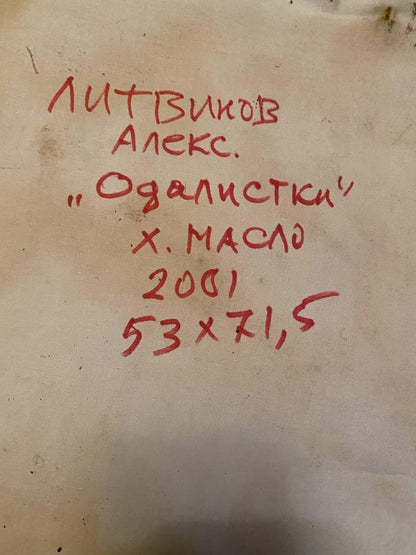 ЛИТВИНОВ
Алекс.
„Одалистки”
х. МАСЛО
2001
53 х 71,5